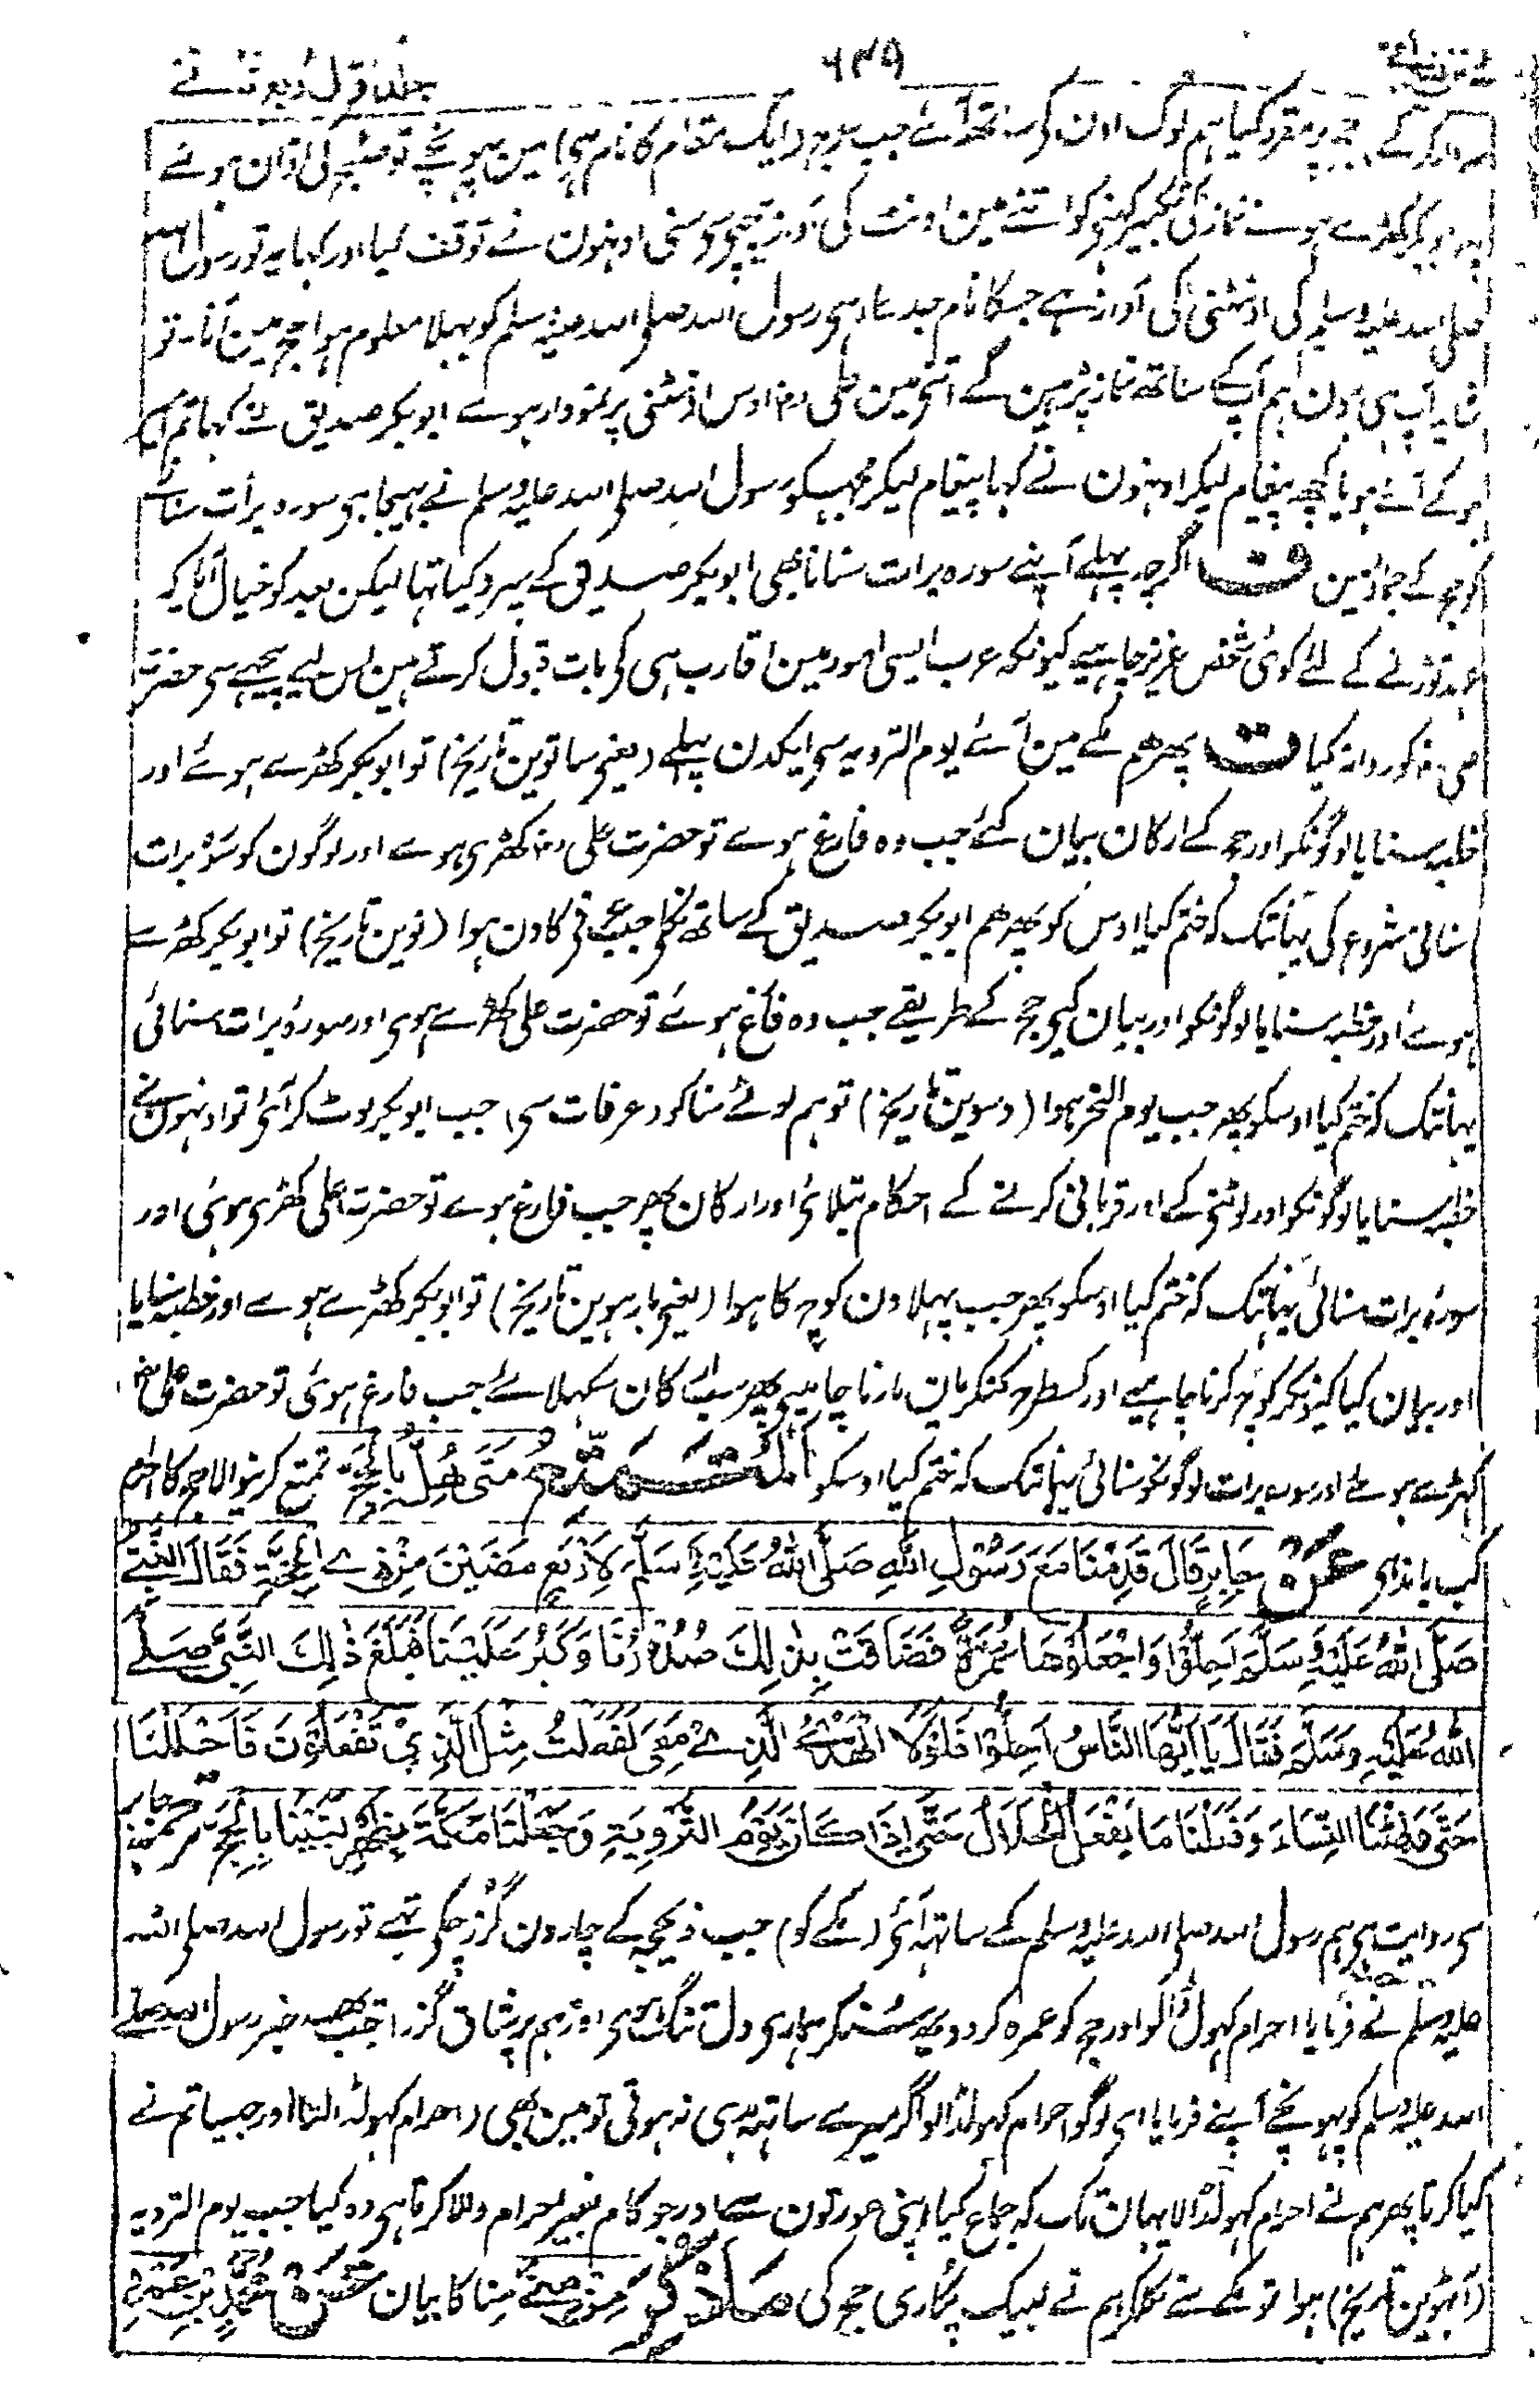 ۶۴۹
کے حج پر مقرر کیا ہم لوگ اون کی ساتھ آئے جب (ایک مقام کا نام ہی) مین پہونچے تو صبح کی اذان ہوئے
کھڑے ہوے نماز کی تکبیر کہنی کو اتنے مین اونٹ کی آواز پیچھی سی سنی اونہون نے توقف کیا اور کہا یہ تو رسول اللہ
صلی اللہ علیہ وسلم کی اونٹنی کی آواز ہے جسکا نام جدعا ہی رسول اللہ صلی اللہ علیہ وسلم کو پہلا معلوم ہوا حج مین آنا تو
شاید آپ ہی ہون ہم آپکے ساتھ نماز پڑہین گے اتنی مین علی رض اوس اونٹنی پر نمودار ہوے ابو بکر صدیق نے کہا تم امیر
ہو کے آئے ہو یا کچھ پیغام لیکر اونہون نے کہا پیغام لیکر مجہکو رسول اللہ صلی اللہ علیہ وسلم نے بہیجا ہی سورہ برأت سنانے
کو حج کے مین ف اگرچہ پہلے آپنے سورہ برات سنانا بھی ابو بکر صدیق کے سپرد کیا تہا لیکن بعد کو خیال آیا کہ
عہد توڑنے کے لئے کوئی شخص عزیز چاہیے کیونکہ عرب ایسی امور مین اقارب ہی کی بات قبول کرتے ہین اس لیے پیچھے سی حضرت
علی رض کو روانہ کیا ف پھر ہم مکے مین آئے یوم الترویہ سی ایکدن پہلے (یعنی ساتوین تاریخ) تو ابو بکر کھڑے ہوئے اور
خطبہ سنایا لوگونکو اور حج کے ارکان بیان کئے جب وہ فارغ ہوے تو حضرت علی رض کھڑی ہوے اور لوگون کو سورہ برات
سنانی شروع کی یہانتک کہ ختم کیا اوس کو پھر ہم ابو بکر صدیق کے ساتھ نکلی جب عرفی کا دن ہوا (نوین تاریخ) تو ابو بکر کھڑے
ہوے اور خطبہ سنایا لوگونکو اور بیان کیی حج کے طریقے جب وہ فارغ ہوئے تو حضرت علی کھڑے ہوی اور سورہ برات سنائی
یہانتک کہ ختم کیا اوسکو پھر جب یوم النحر ہوا (دسوین تاریخ) تو ہم لوٹے منا کو (عرفات سی) جب ابو بکر لوٹ کر آئی تو اونہون نے
خطبہ سنایا لوگونکو اور لوٹنی کے اور قربانی کرنے کے احکام بتلائی اور ارکان پھر جب فارغ ہوے تو حضرت علی کھڑی ہوئی اور
سورہ برات سنائی یہانتک کہ ختم کیا اوسکو پھر جب پہلا دن کوچ کا ہوا (یعنی بارہوین تاریخ) تو ابو بکر کھڑے ہوے اور خطبہ سنایا
اور بیان کیا کیونکر کوچ کرنا چاہیے اور کسطرح کنکریان مارنا چاہیی پھر سب ارکان سکہلائے جب فارغ ہوئی تو حضرت علی رض
کہڑے ہوئے اور سورہ برات لوگونکو سنائی یہانتک کہ ختم کیا اوسکو اَلْمُتَمَتِّعُ مَتَى يُهِلُّ بِالْحَجِّ تمتع کرنیوالا حج کا احرام
کب باندہی عَنْ جَابِرٍ قَالَ قَدِمْنَا مَعَ رَسُوْلِ اللهِ صَلَّى اللهُ عَلَيْهِ وَسَلَّمَ لِأَرْبَعٍ مَضَيْنَ مِنْ ذِي الْحِجَّةِ فَقَالَ النَّبِيُّ
صَلَّى اللهُ عَلَيْهِ وَسَلَّمَ اَحِلُّوْا وَاجْعَلُوْهَا عُمْرَةً فَضَاقَتْ بِذٰلِكَ صُدُوْرُنَا وَكَبُرَ عَلَيْنَا فَبَلَغَ ذٰلِكَ النَّبِيَّ صَلَّى
اللهُ عَلَيْهِ وَسَلَّمَ فَقَالَ يَا اَيُّهَا النَّاسُ اَحِلُّوْا فَلَوْلَا الْهَدْيُ الَّذِيْ مَعِيَ لَفَعَلْتُ مِثْلَ الَّذِيْ تَفْعَلُوْنَ فَاَحْلَلْنَا
حَتّٰى وَطِئْنَا النِّسَاءَ وَفَعَلْنَا مَا يَفْعَلُ الْحَلَالُ حَتّٰى اِذَا كَانَ يَوْمُ التَّرْوِيَةِ وَجَعَلْنَا مَكَّةَ بِظَهْرٍ لَبَّيْنَا بِالْحَجِّ ترجمہ جابر
سی روایت ہی ہم رسول اللہ صلی اللہ علیہ وسلم کے ساتہہ آئی (مکے کو) جب ذیحجہ کے چار دن گزر چکی تہے تو رسول اللہ صلی اللہ
علیہ وسلم نے فرمایا احرام کہول ڈالو اور حج کو عمرہ کر دو یہ سنکر ہماری دل تنگ ہوی اور ہم پر شاق گزرا جب یہ خبر رسول اللہ صلی
اللہ علیہ وسلم کو پہونچے آپنے فرمایا ای لوگو احرام کہولڈالو اگر میرے ساتہہ ہدی نہ ہوتی تو مین بھی (احرام کہولڈالتا) اور جیسا تم نے
کیا کرتا پھر ہم نے احرام کہولڈالا یہان تک کہ جماع کیا اپنی عورتون سے اور جو کام بغیر احرام والا کرتا ہی وہ کیا جب یوم الترویہ
(آٹہوین تاریخ) ہوا تو مکے سے نکلکر ہم نے لبیک پکاری حج کی مَا ذُكِرَ فِيْ مِنًى منا کا بیان عَنْ مُحَمَّدِ بْنِ